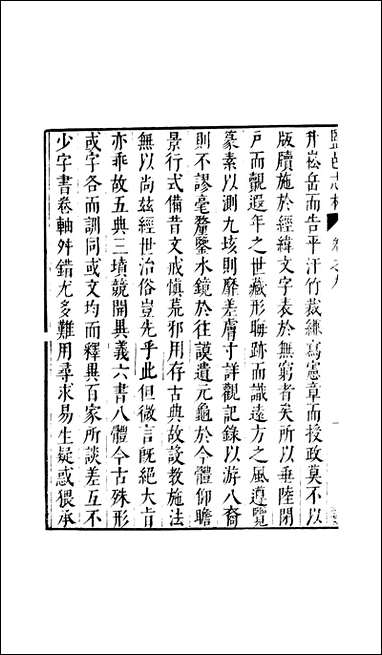 鹽邑志林 卷之九
升崧岳而告平汗竹裁縑寫憲章而授政莫不以
版牘施於經緯文字表於無窮者矣所以垂陸閉
戸而觀遐年之世藏形聮跡而識遠方之風遵覽
篆素以測九垓則靡差膚寸詳觀記錄以游八裔
則不謬毫釐鑒水鏡於往謨遺元龜於今體仰瞻
景行式備昔文戒慎荒邪用存古典故設教施法
無以尚茲經世治俗豈先乎此但微言旣絕大㫖
亦乖故五典三墳競開異義六書八體今古殊形
或字各而訓同或文均而釋異百家所談差互不
少字書卷軸舛錯尤多難用尋求易生疑惑猥承